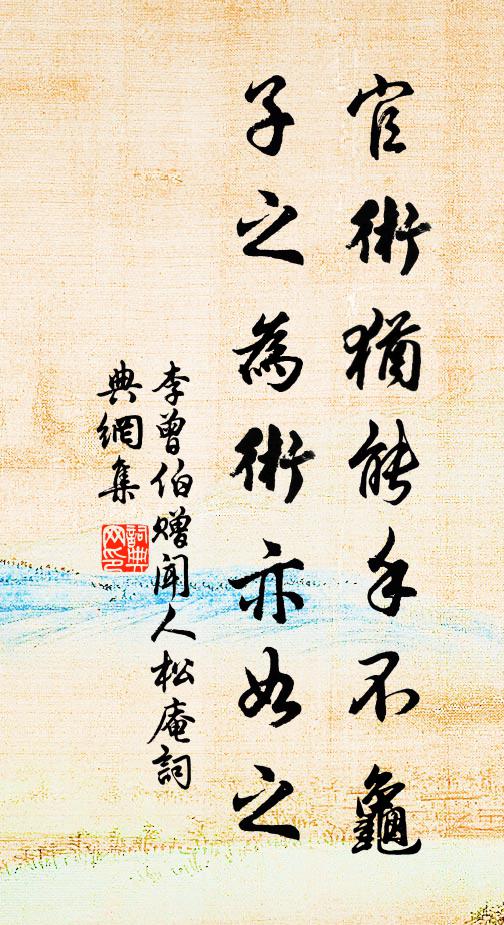 官術猶能手不龜
子之為術亦如之
李曾伯贈聞人松庵詞
典網集
詞典
网印